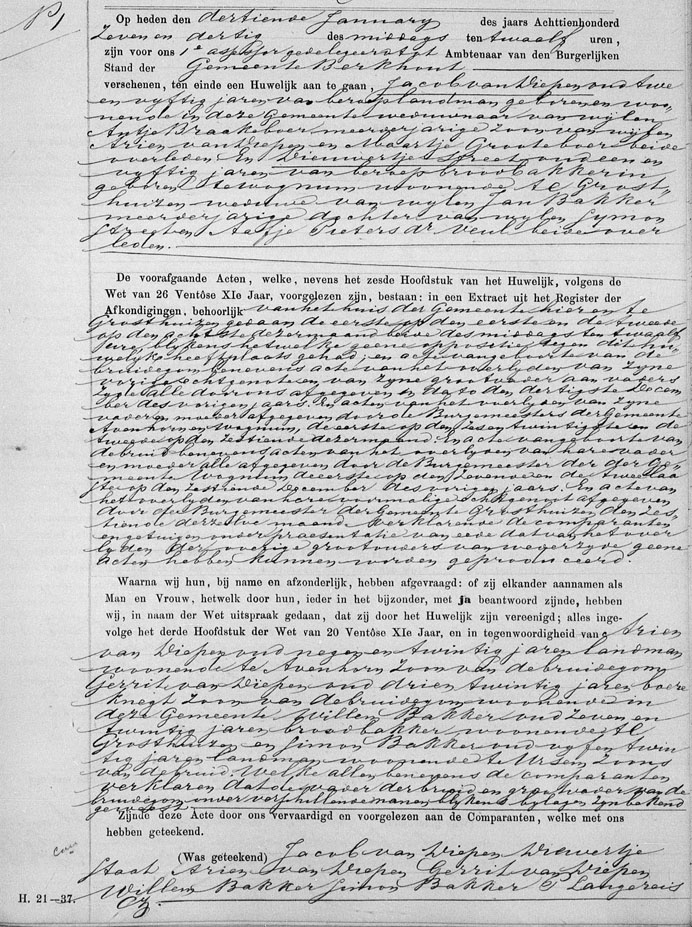 N 1
Op heden den dertiende January des jaars Achttienhonderd
Zeven en dertig des middags ten twaalf uren,
zijn voor ons 1e assessor gedelegeerd tot Ambtenaar van den Burgerlijken
Stand der Gemeente Berkhout
verschenen, ten einde een Huwelijk aan te gaan, Jacob van Diepen oud twe
en vyftig jaren van beroep landman geboren en woo
nende in deze Gemeente weduwnaar van wijlen
Antje Braakeboer meerderjarige Zoon van wijlen
Arien van Diepen en Maartje Grooteboer beide
overleden En Dieuwertje Streek oud een en
vyftig jaren van beroep broodbakkerin
geboren te Wognum woonende te Grost-
huizen weduwe van wylen Jan Bakker
meerderjarige dochter van wylen Symon
en Aafje Pieters dr Veul beide over
leden.
De voorafgaande Acten, welke, nevens het zesde Hoofdstuk van het Huwelijk, volgens de
Wet van 26 Ventôse XIe Jaar, voorgelezen zijn, bestaan: in een Extract uit het Register der
Afkondigingen, behoorlijk van het huis der Gemeente hier en te
Grosthuizen gedaan de eerste op den eersten de tweede
op den achtste dezer maand beide des middags ten twaalf
ure blykens het welke geene oppositie tegen dit hu
welyk heeft plaats gehad; en acte van geboorte van de
bruidegom benevens acte van het overlyden van zyne
vorige echtgenote en van zyne grootvader aan vaders
zyde alle door ons afgegeven op den dertigste Decem
ber des vorigen jaars. En acten van het overlyden van zyne
vader en moeder afgegeven door de Burgemeesters der Gemeente
Avenhorn en Wognum, de eerste op den zes en twintigste en de
tweede op den zestiende dezer maand En acte van geboorte van
de bruid benevens acten van het overlyden van hare vader
en moeder alle afgegeven door de Burgemeester der Ge
meente Wognum de eerste op den
op den zestiende December des vorigen jaars En acte van
het overlyden van hare voormalige Echtgenoot afgegeven
door de Burgemeester der Gemeente Grosthuizen den zes
tiende derzelve maand verklarende de comparanten
en getuigen onder praesentatie van eede dat van het over
lyden der overige grootouders van wederzyde geene
acten hebben kunnen worden geproduceerd.
Waarna wij hun, bij name en afzonderlijk, hebben afgevraagd: of zij elkander aannamen als
Man en Vrouw, hetwelk door hun, ieder in het bijzonder, met ja beantwoord zijnde, hebben
wij, in naam der Wet uitspraak gedaan, dat zij door het Huwelijk zijn vereenigd; alles inge-
volge het derde Hoofdstuk der Wet van 20 Ventôse XIe Jaar, en in tegenwoordigheid van Arien
van Diepen oud negen en twintig jaren landman
woonende te Avenhorn Zoon van de bruidegom
Gerrit van Diepen oud drie en twintig jaren boere
knegt Zoon van de bruidegom woonende in
deze Gemeente Willem Bakker oud Zeven en
twintig jaren broodbakker woonende te
Grosthuizen en Simon Bakker oud vyf en twin
tig jaren landman woonende te Ursem Zoons
van de bruid Welke allen benevens de comparanten
verklaren dat de vader der bruid en grootvader van de
bruidegom onder verschillende namen blykens bylagen zyn bekend
geweest
Zijnde deze Acte door ons vervaardigd en voorgelezen aan de Comparanten, welke met ons
hebben geteekend.
(Was geteekend) Jacob van Diepen Diewertje
Arien van Diepen Gerrit van Diepen
Willem Bakker Simon Bakker P Langereis
Cz.
H. 21—37.